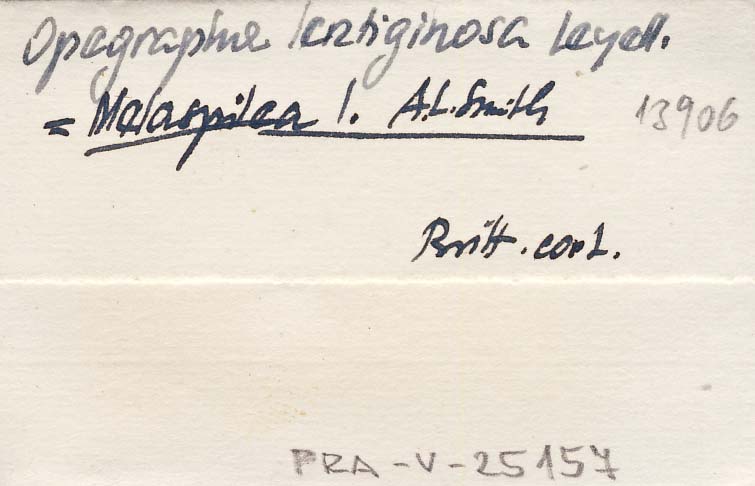 Opegrapha lentiginosa Leyell.
= Melaspilea l. A.L. Smith
13906
Britt. cort.
PRA-V-25157